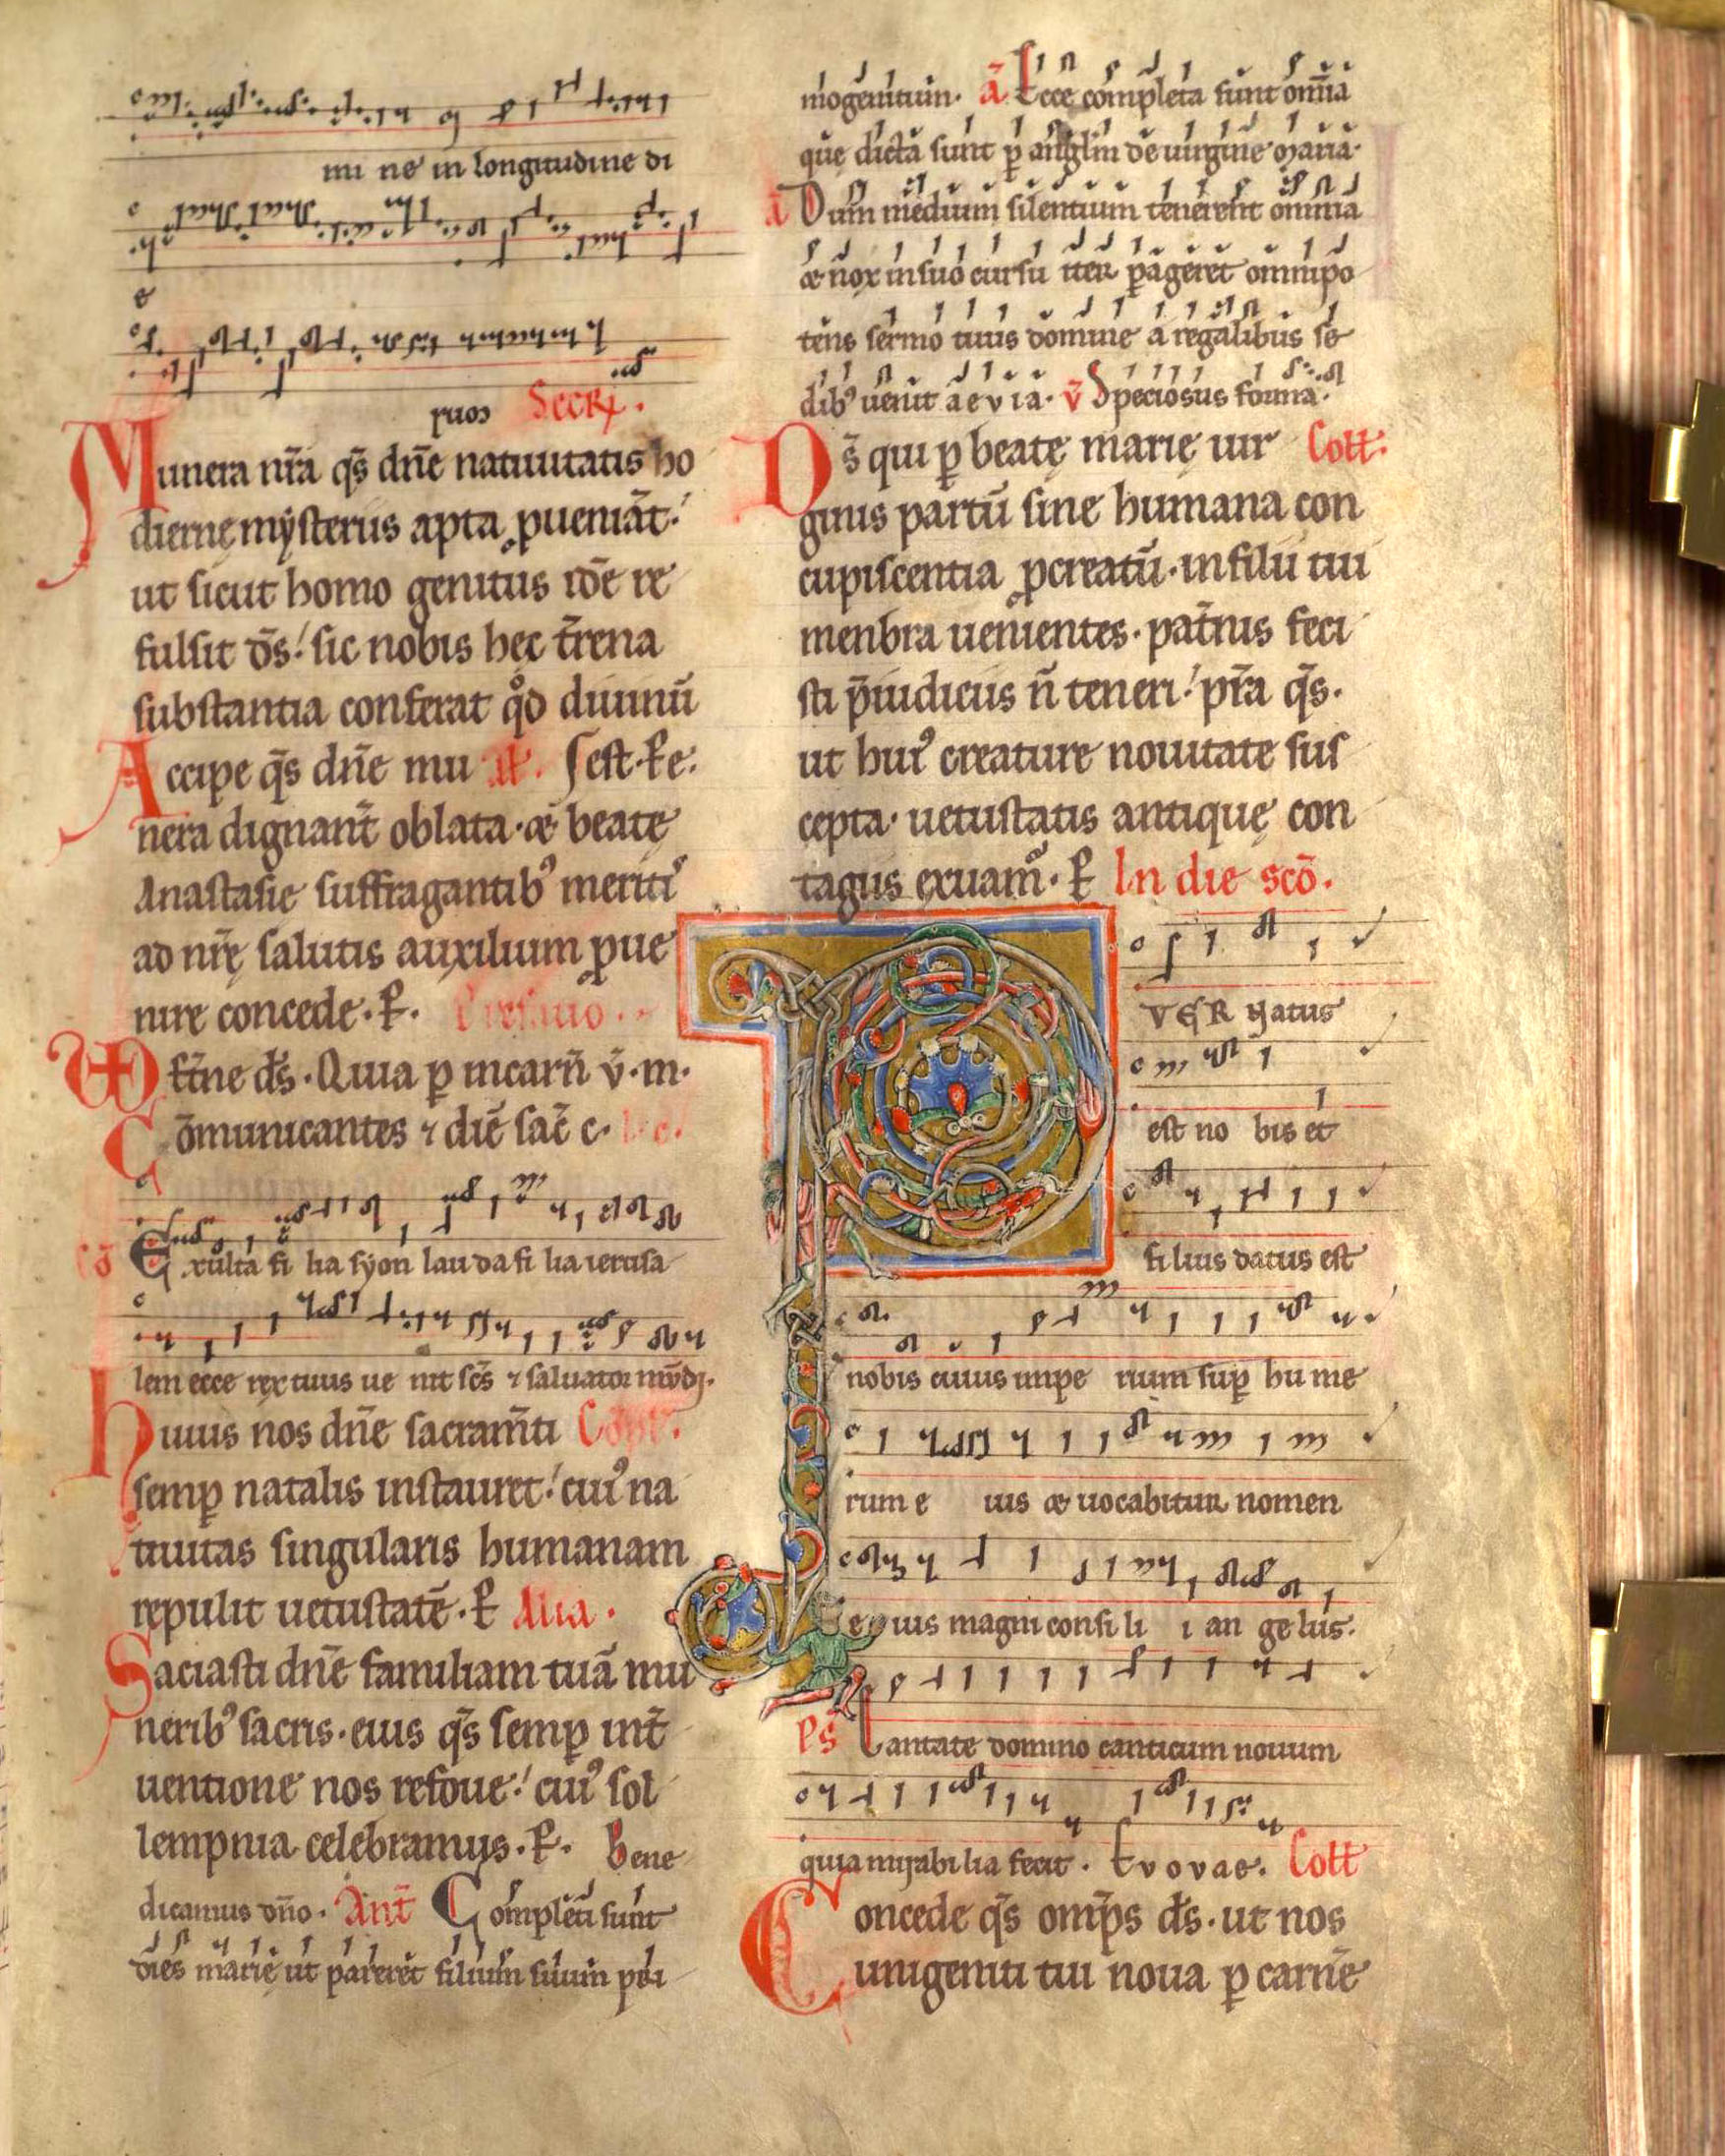 mi ne in longitudine di
e
ruoɔ Secr̄.
Munera nr̄a qs̄ dn̄e natiuitatis ho
dierne mẏsteriis apta ꝓueniāt.'
ut sicut homo genitus idē re
fulsit ds̄.' sic nobis hec t̄rena
substantia conferat qͦd diuinū
Accipe qs̄ dn̄e mu al. S est. P̄e.
nera dignant̄ oblata. et beatę
Anastasie suffragantibꝰ meriti
ad nr̄ę salutis auxilium ꝓue
nire concede. P̄. Prefatio.
VD et̄ne ds̄. Quia ꝑ incarn̄ v̄. m.
Cōmunicantes ⁊ diē sac̄ c.
cō Exulta fi lia sẏon lau da fi lia ierusa
lem ecce rex tuus ue nit sc̄s ⁊ saluator mūdi.
huius nos dn̄e sacram̄ti Cōpl̄.
semꝑ natalis instauret.' cuiꝰ na
tiuitas singularis humanam
repulit uetustatē. P̄ Alia.
Saciasti dn̄e familiam tuā mu
neribꝰ sacris. eius qs̄ semꝑ int̄
uentione nos refoue.' cuiꝰ sol
lempnia celebramus. P̄. Bene
dicamus dn̄o. Ant̄ Completi sunt
dies marię ut pareret filium suum pri
mogenitum. ā Ecce completa sunt om̄ia
que dicta sunt ꝑ anglm̄ de uirgine maria.
ā Dum medium silentium tenerent omnia
et nox in suo cursu iter ꝑageret omnipo
tens sermo tuus domine a regalibus se
dibꝰ uenit aevia. v̄ Speciosus forma.
Ds̄ qui ꝑ beatę marię uir Coll̄.
ginis partū sine humana con
cupiscentia ꝓcreatū. in filii tui
menbra uenientes. pat̄nis feci
sti p̄iudiciis n̄ teneri.' pr̄a qs̄.
ut huiꝰ creature nouitate sus
cepta. uetustatis antiquę con
tagiis exuamꝰ. P̄ In die sc̄o.
PVER Natus
est no bis et
filius datus est
nobis cuius impe rium suꝑ hu me
rum e ius et uocabitur nomen
e ius magni consi li i an ge lus.
Ps̄ Cantate domino canticum nouum
quia mirabi lia fecit. Evovae. Coll̄
Concede qs̄ omp̄s ds̄. ut nos
unigeniti tui noua ꝑ carnē